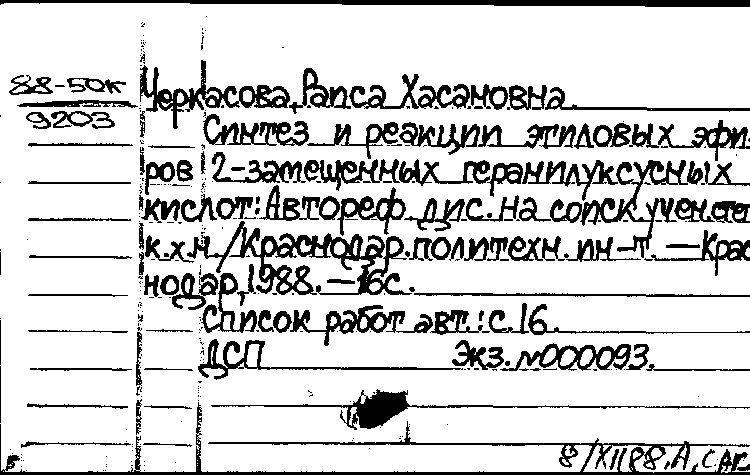 88-50к
9203
Черкасова, Раиса Хасановна.
Синтез и реакции этиловых эфи-
ров 2-замещенных геранилуксусных
кислот: Автореф. дис. на соиск. учен. степ
к.х.н. / Краснодар. политехн. ин-т. — Крас
нодар, 1988. — 16 с.
Список работ авт.: с. 16.
ДСП Экз. №000093.
8/XII 88. А.